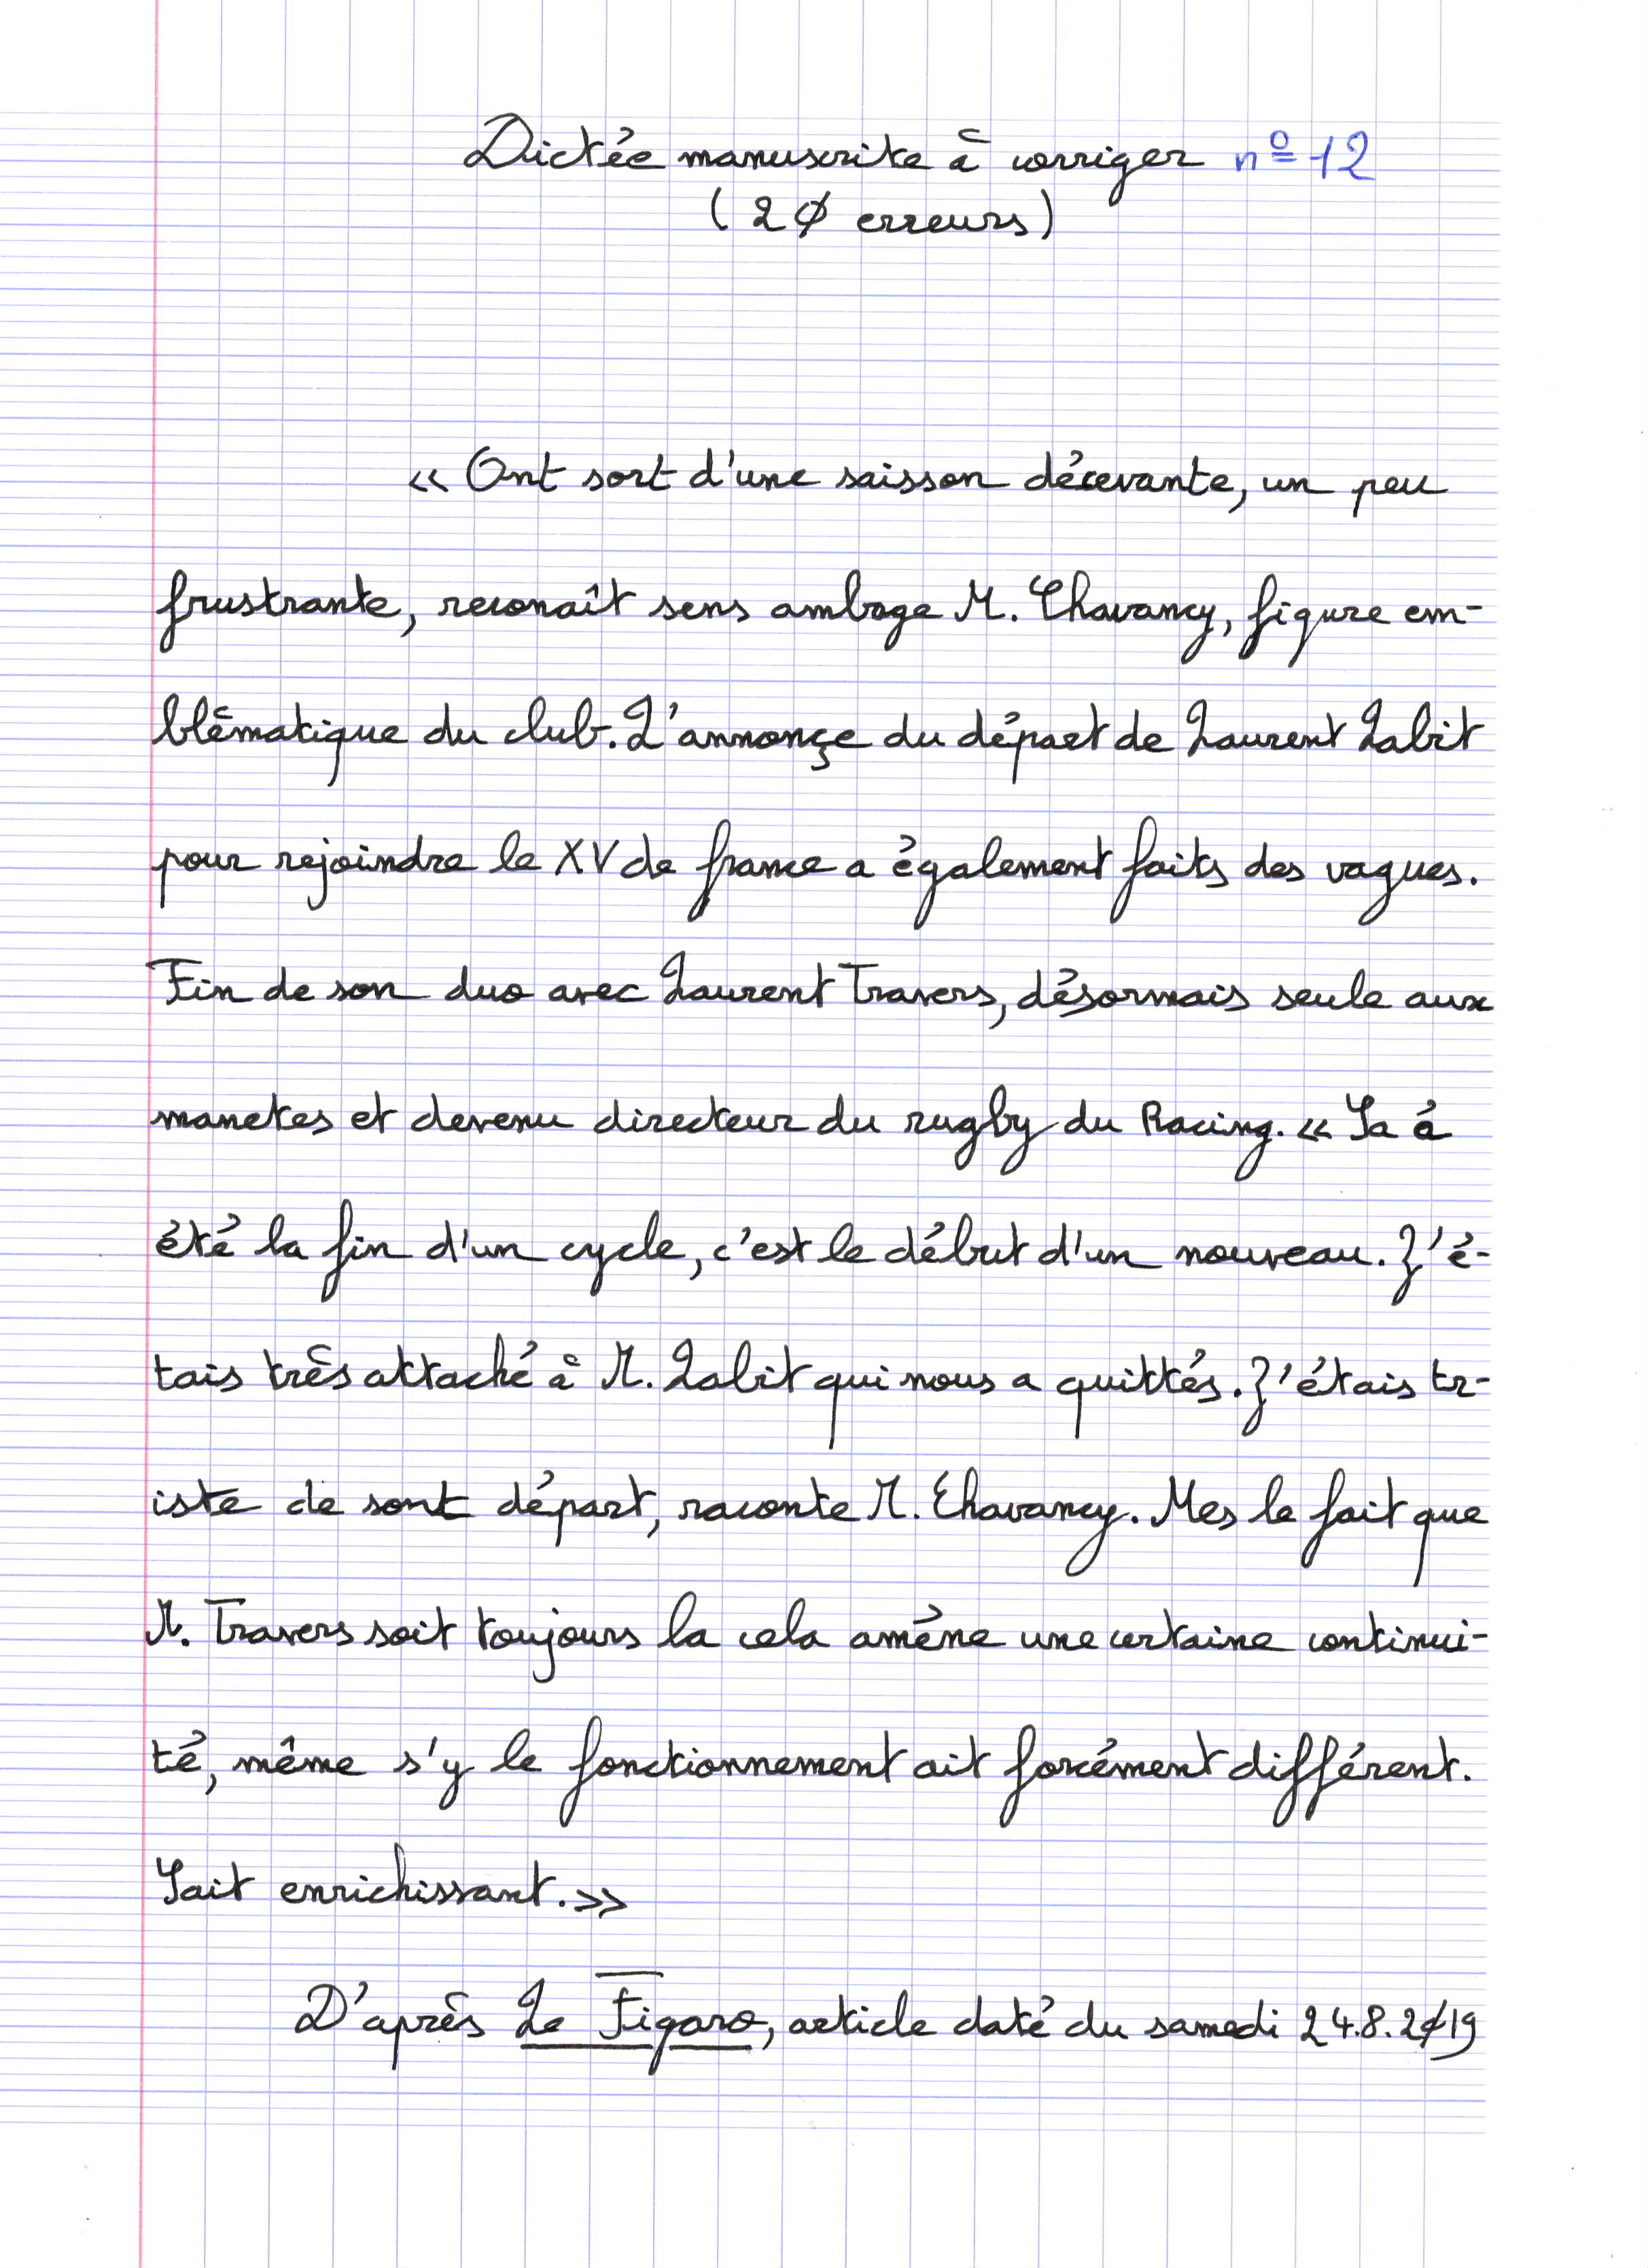 Dictée manuscrite à corriger nº 12
(20 erreurs)
« Ont sort d'une saisson décevante, un peu
frustrante, reconaît sens ambage M. Chavancy, figure em-
blématique du club. L'annonçe du départ de Laurent Labit
pour rejoindre le XV de france a également faits des vagues.
Fin de son duo avec Laurent Travers, désormais seule aux
manetes et devenu directeur du rugby du Racing. « Sa à
été la fin d'un cycle, c'est le début d'un nouveau. J'é-
tais très attaché à M. Labit qui nous a quittés. J'étais tr-
iste de sont départ, raconte M. Chavancy. Mes le fait que
M. Travers soit toujours la cela amène une certaine continui-
té, même s'y le fonctionnement ait forcément différent.
Sait enrichissant. »
D'après Le Figaro, article daté du samedi 24.8.2019